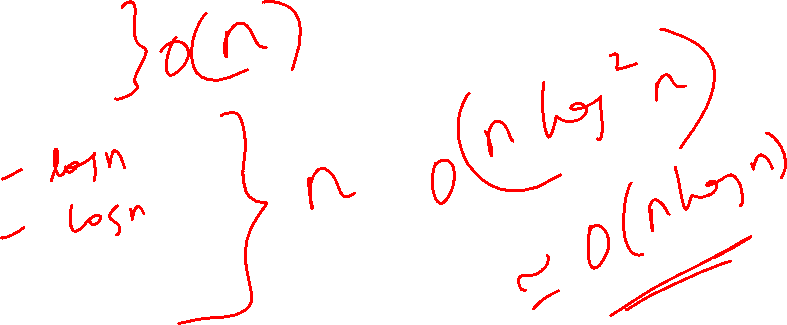 } O(n)
= log n
= log n } n
O(n log² n)
≃ O(n log n)